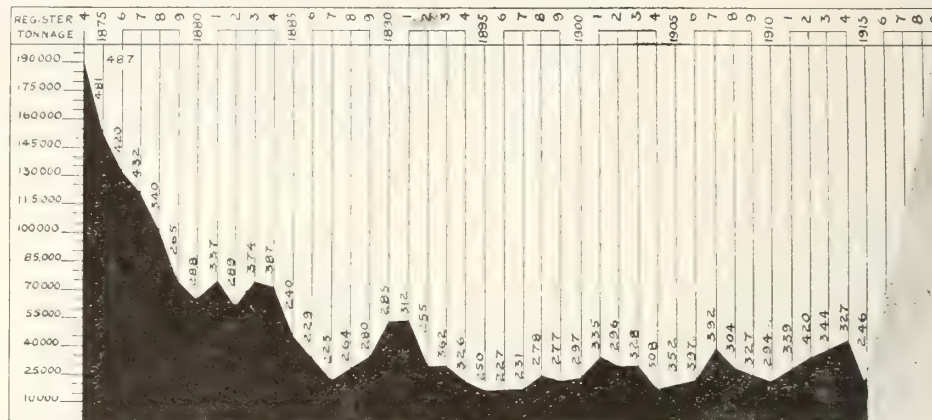 REGISTER TONNAGE
4 1875 6 7 8 9 1880 1 2 3 4 1885 6 7 8 9 1890 1 2 3 4 1895 6 7 8 9 1900 1 2 3 4 1905 6 7 8 9 1910 1 2 3 4 1915 6 7 8
190000
175000
160000
145000
130000
115000
100000
85000
70000
55000
40000
25000
10000
487 481 420 432 340 265 288 337 289 374 387 240 229 223 264 280 285 312 255 362 326 250 227 231 278 277 297 335 296 328 308 352 397 392 304 327 294 339 420 344 327 246